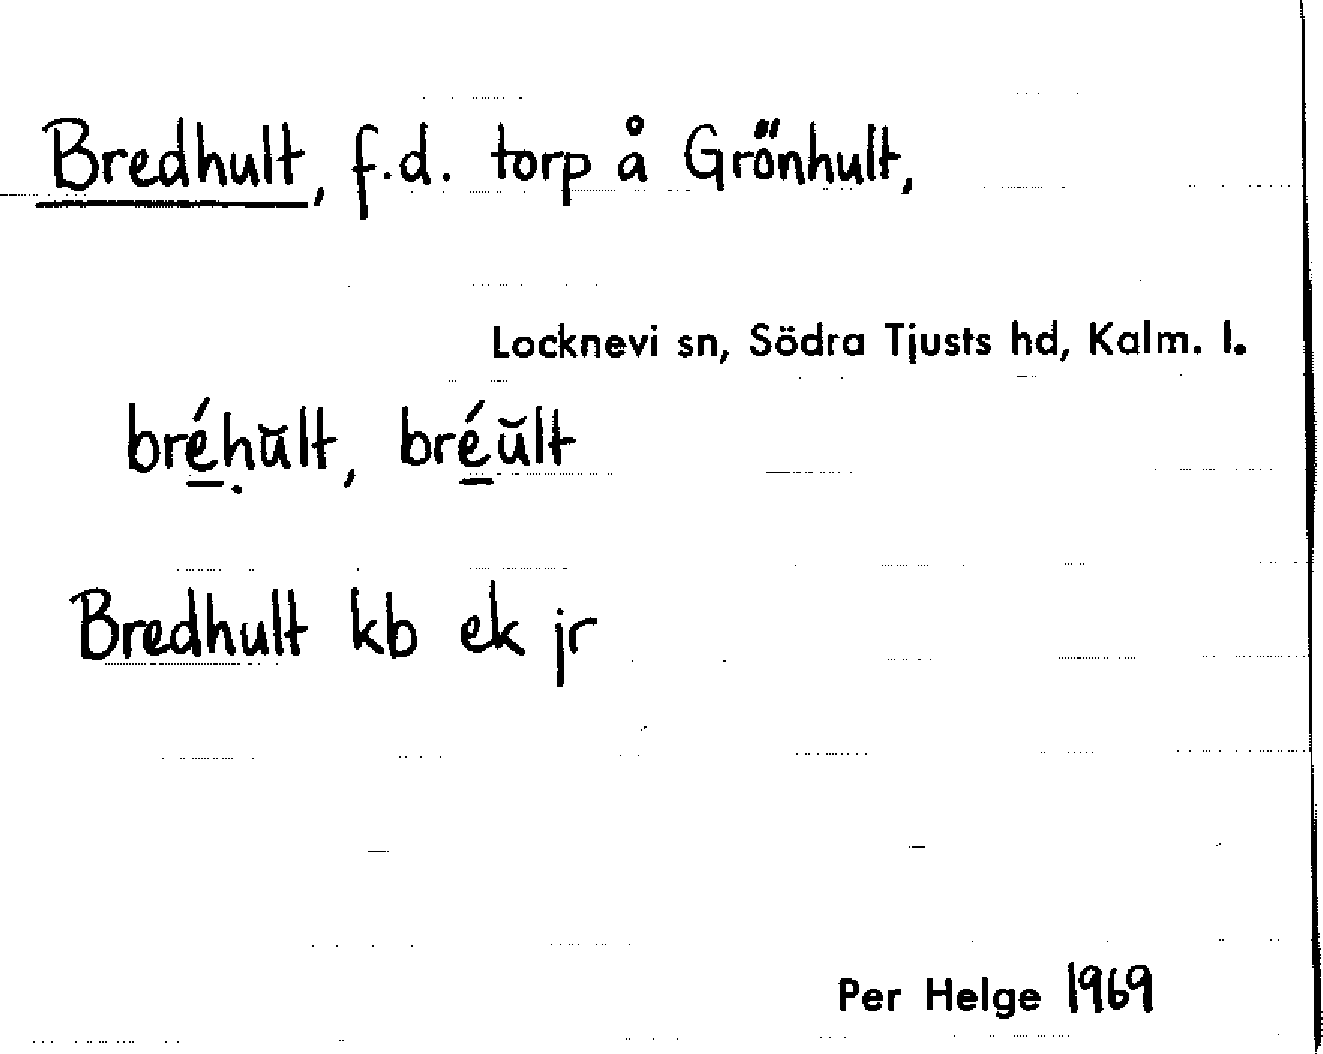 Bredhult, f.d. torp å Grönhult,
Locknevi sn, Södra Tjusts hd, Kalm. l.
bré̱ḥŭlt, bré̱ŭlt
Bredhult kb ek jr
Per Helge 1969